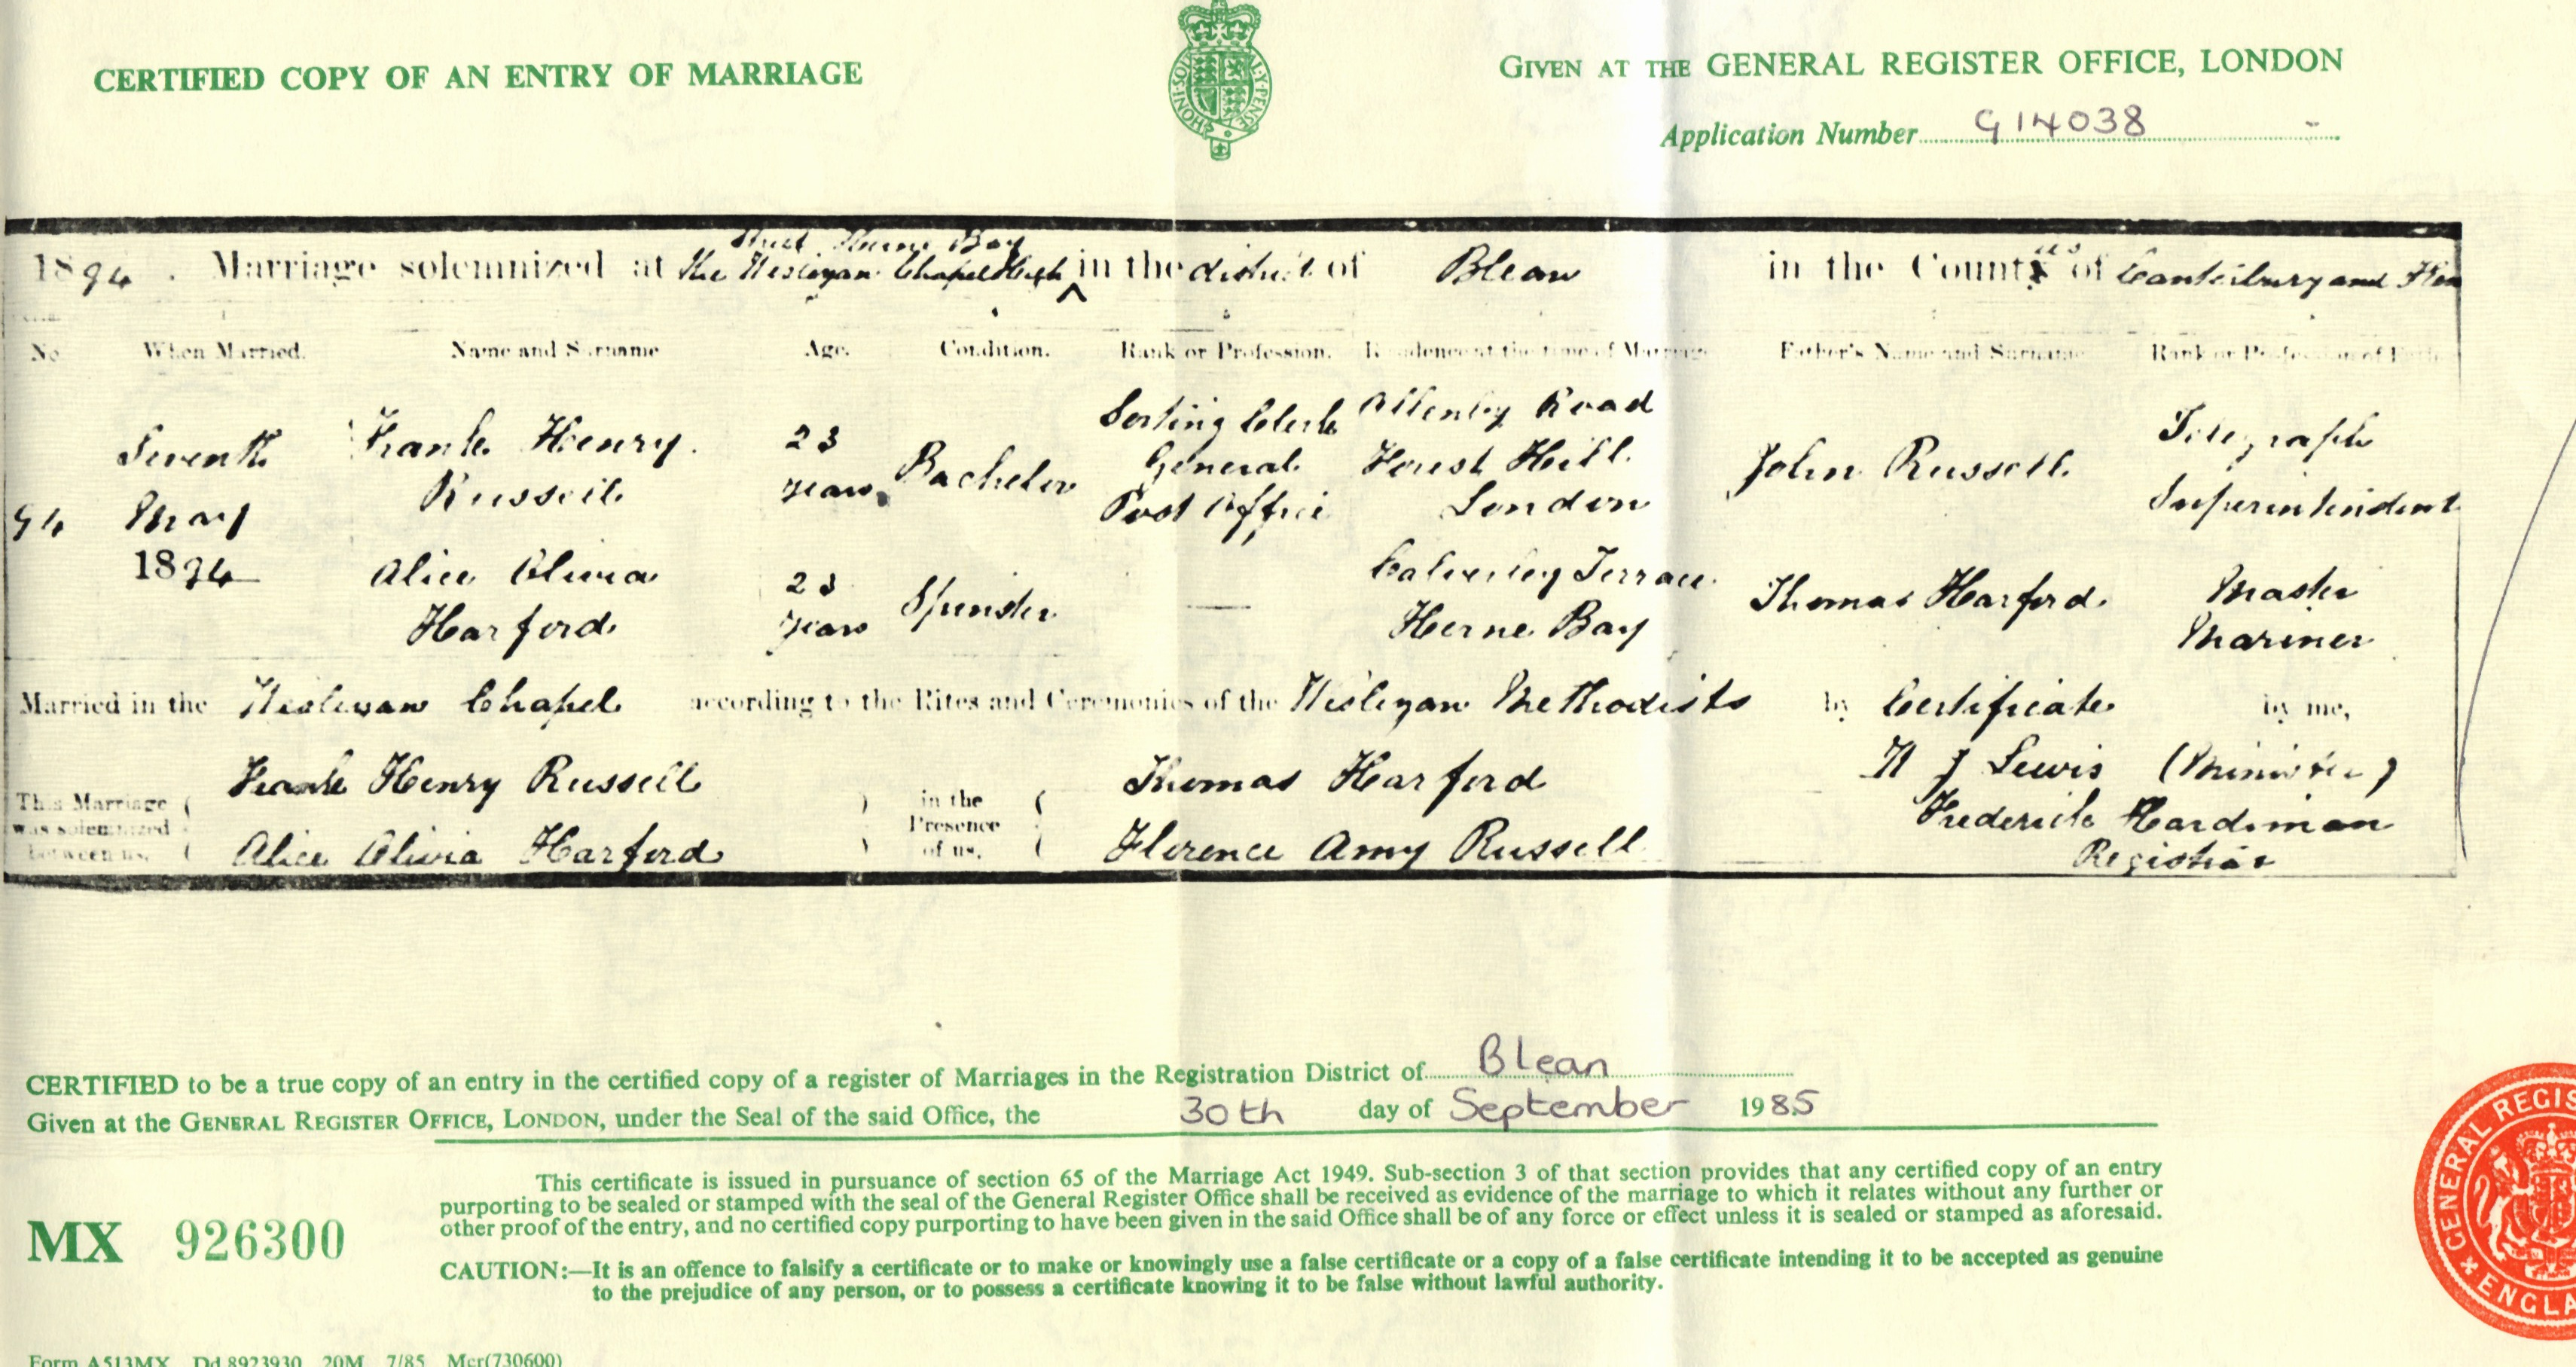 CERTIFIED COPY OF AN ENTRY OF MARRIAGE
GIVEN AT THE GENERAL REGISTER OFFICE, LONDON
Application Number G14038 -
HONI·SOIT MAL·Y·PENSE
Street Herne Bay
1894. Marriage solemnized at the Wesleyan Chapel High in the district of Blean in the Counties of Canterbury and Ken
No When Married. Name and Surname Age. Condition. Rank or Profession. Residence at the time of Marriage Father's Name and Surname Rank or Profession of Father
94 Seventh May 1894 Frank Henry Russell 23 years Bachelor Sorting Clerk General Post Office Allenby Road Forest Hill London John Russell Telegraph Superintendent
Alice Olivia Harford 23 years Spinster — Calverley Terrace Herne Bay Thomas Harford Master Mariner
Married in the Wesleyan Chapel according to the Rites and Ceremonies of the Wesleyan Methodists by Certificate by me,
This Marriage was solemnized between us, Frank Henry Russell Alice Olivia Harford in the Presence of us, Thomas Harford Florence Amy Russell J Lewis (Minister) Frederick Hardiman Registrar
CERTIFIED to be a true copy of an entry in the certified copy of a register of Marriages in the Registration District of Blean
Given at the GENERAL REGISTER OFFICE, LONDON, under the Seal of the said Office, the 30th day of September 1985
This certificate is issued in pursuance of section 65 of the Marriage Act 1949. Sub-section 3 of that section provides that any certified copy of an entry
purporting to be sealed or stamped with the seal of the General Register Office shall be received as evidence of the marriage to which it relates without any further or
other proof of the entry, and no certified copy purporting to have been given in the said Office shall be of any force or effect unless it is sealed or stamped as aforesaid.
MX 926300
CAUTION:—It is an offence to falsify a certificate or to make or knowingly use a false certificate or a copy of a false certificate intending it to be accepted as genuine
to the prejudice of any person, or to possess a certificate knowing it to be false without lawful authority.
GENERAL REGIS
ENGLA
Form A513MX Dd 8923930 20M 7/85 Mcr(730600)